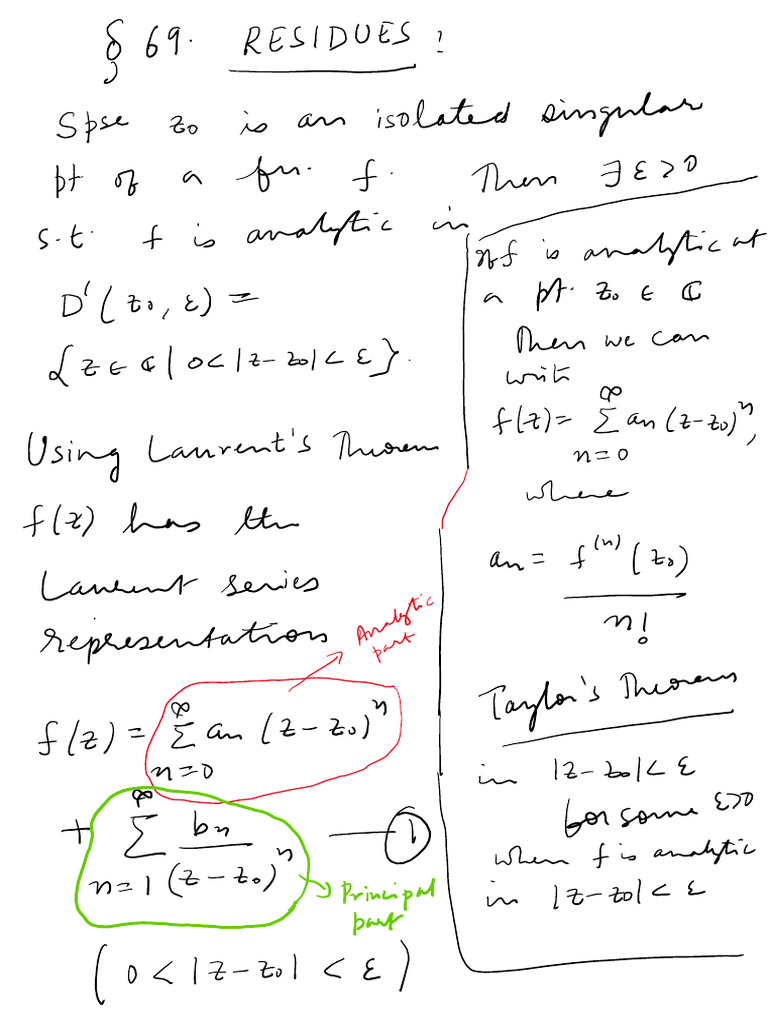 § 69. RESIDUES :
Spse z₀ is an isolated singular
pt of a fn. f. Then ∃ ε > 0
s.t. f is analytic in
D'(z₀, ε) =
{z ∈ ℂ | 0 < |z - z₀| < ε}.
Using Laurent's Theorem
f(z) has the
Laurent series
representation
f(z) = ∑_{n=0}^{∞} aₙ (z - z₀)ⁿ
Analytic
part
+ ∑_{n=1}^{∞} bₙ / (z - z₀)ⁿ — ①
Principal
part
(0 < |z - z₀| < ε)
If f is analytic at
a pt. z₀ ∈ ℂ
Then we can
write
f(z) = ∑_{n=0}^{∞} aₙ (z - z₀)ⁿ,
where
aₙ = f⁽ⁿ⁾(z₀) / n!
Taylor's Theorem
in |z - z₀| < ε
for some ε > 0
when f is analytic
in |z - z₀| < ε